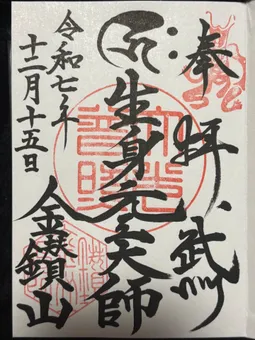 奉拝 武州
生身元三大師
金鑚山
令和七年
十二月十五日